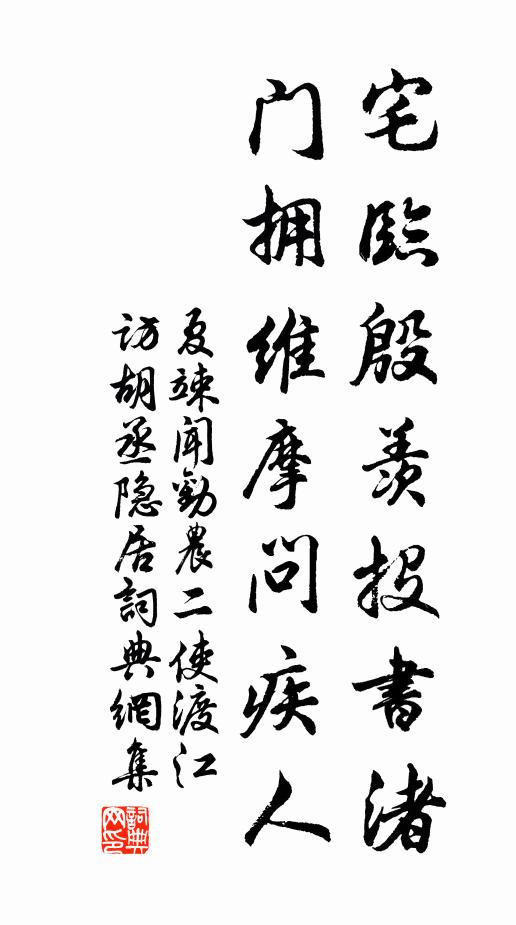 宅臨殷羨投書渚
门拥维摩问疾人
夏竦闻勸農二使渡江
访胡丞隐居詞典網集
詞典网印